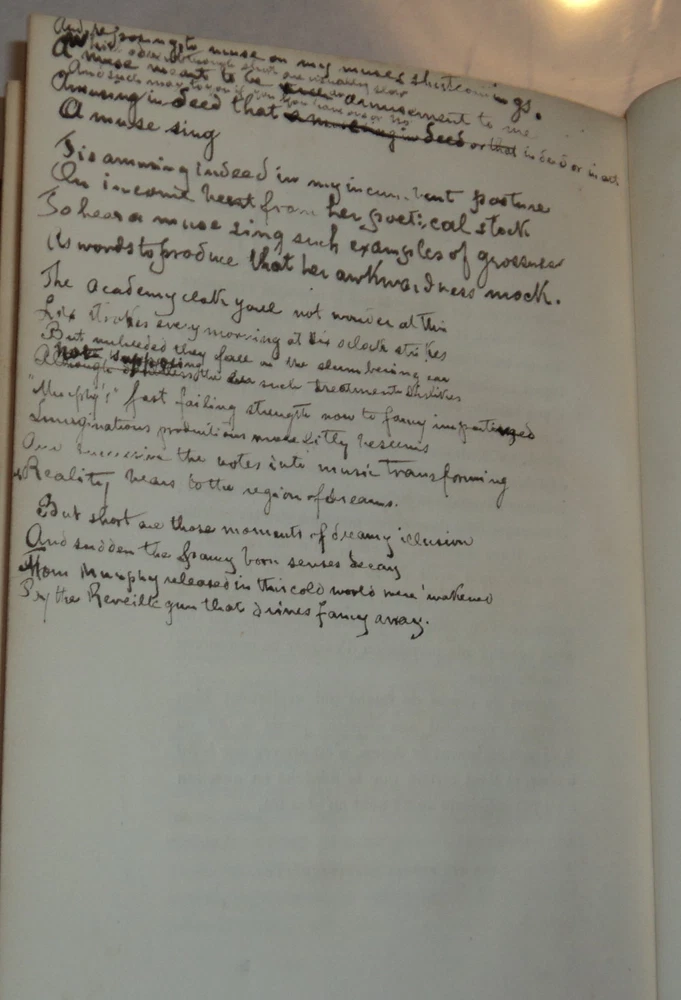 And reposing to muse on my muses shortcomings.
A muse wants to be amusement to me
Amusing indeed that a musing in deed or that in deed or in act
A muse sing
Tis amusing indeed in my incumbent posture
On income heart from her poetical stock
To hear a muse sing such examples of grossness
Its words to produce that her awkwardness mock.
The academy clock youll not wonder at this
Six strokes every morning at six oclock strikes
But unheeded they fall on the slumbering ear
Although the such treatment dislikes
"Murphy's" fast failing strength now to fancy imparting
Imaginations productions more fitly beseems
And the notes into music transforming
Reality bears to the region of dreams.
But short are those moments of dreamy illusion
And sudden the fancy born senses decay
From Murphy released in this cold world were wakened
By the Reveille gun that drives fancy away.